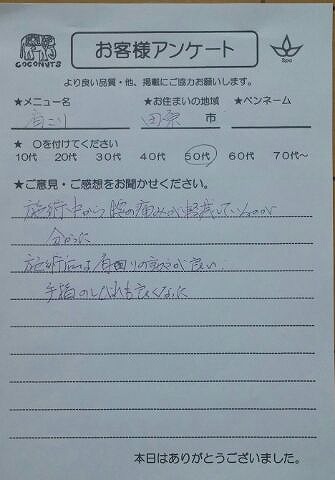 COCONUTS
お客様アンケート
Spa
より良い品質・他、掲載にご協力お願いします。
★メニュー名 ★お住まいの地域 ★ペンネーム
肩こり 田原 市
★ 〇を付けてください
10代 20代 30代 40代 50代 60代 70代～
★ご意見・ご感想をお聞かせください。
施術中から腰の痛みが軽減していくのが
分かった
施術后は肩回りの
が良い
手指のしびれも良くなった
本日はありがとうございました。